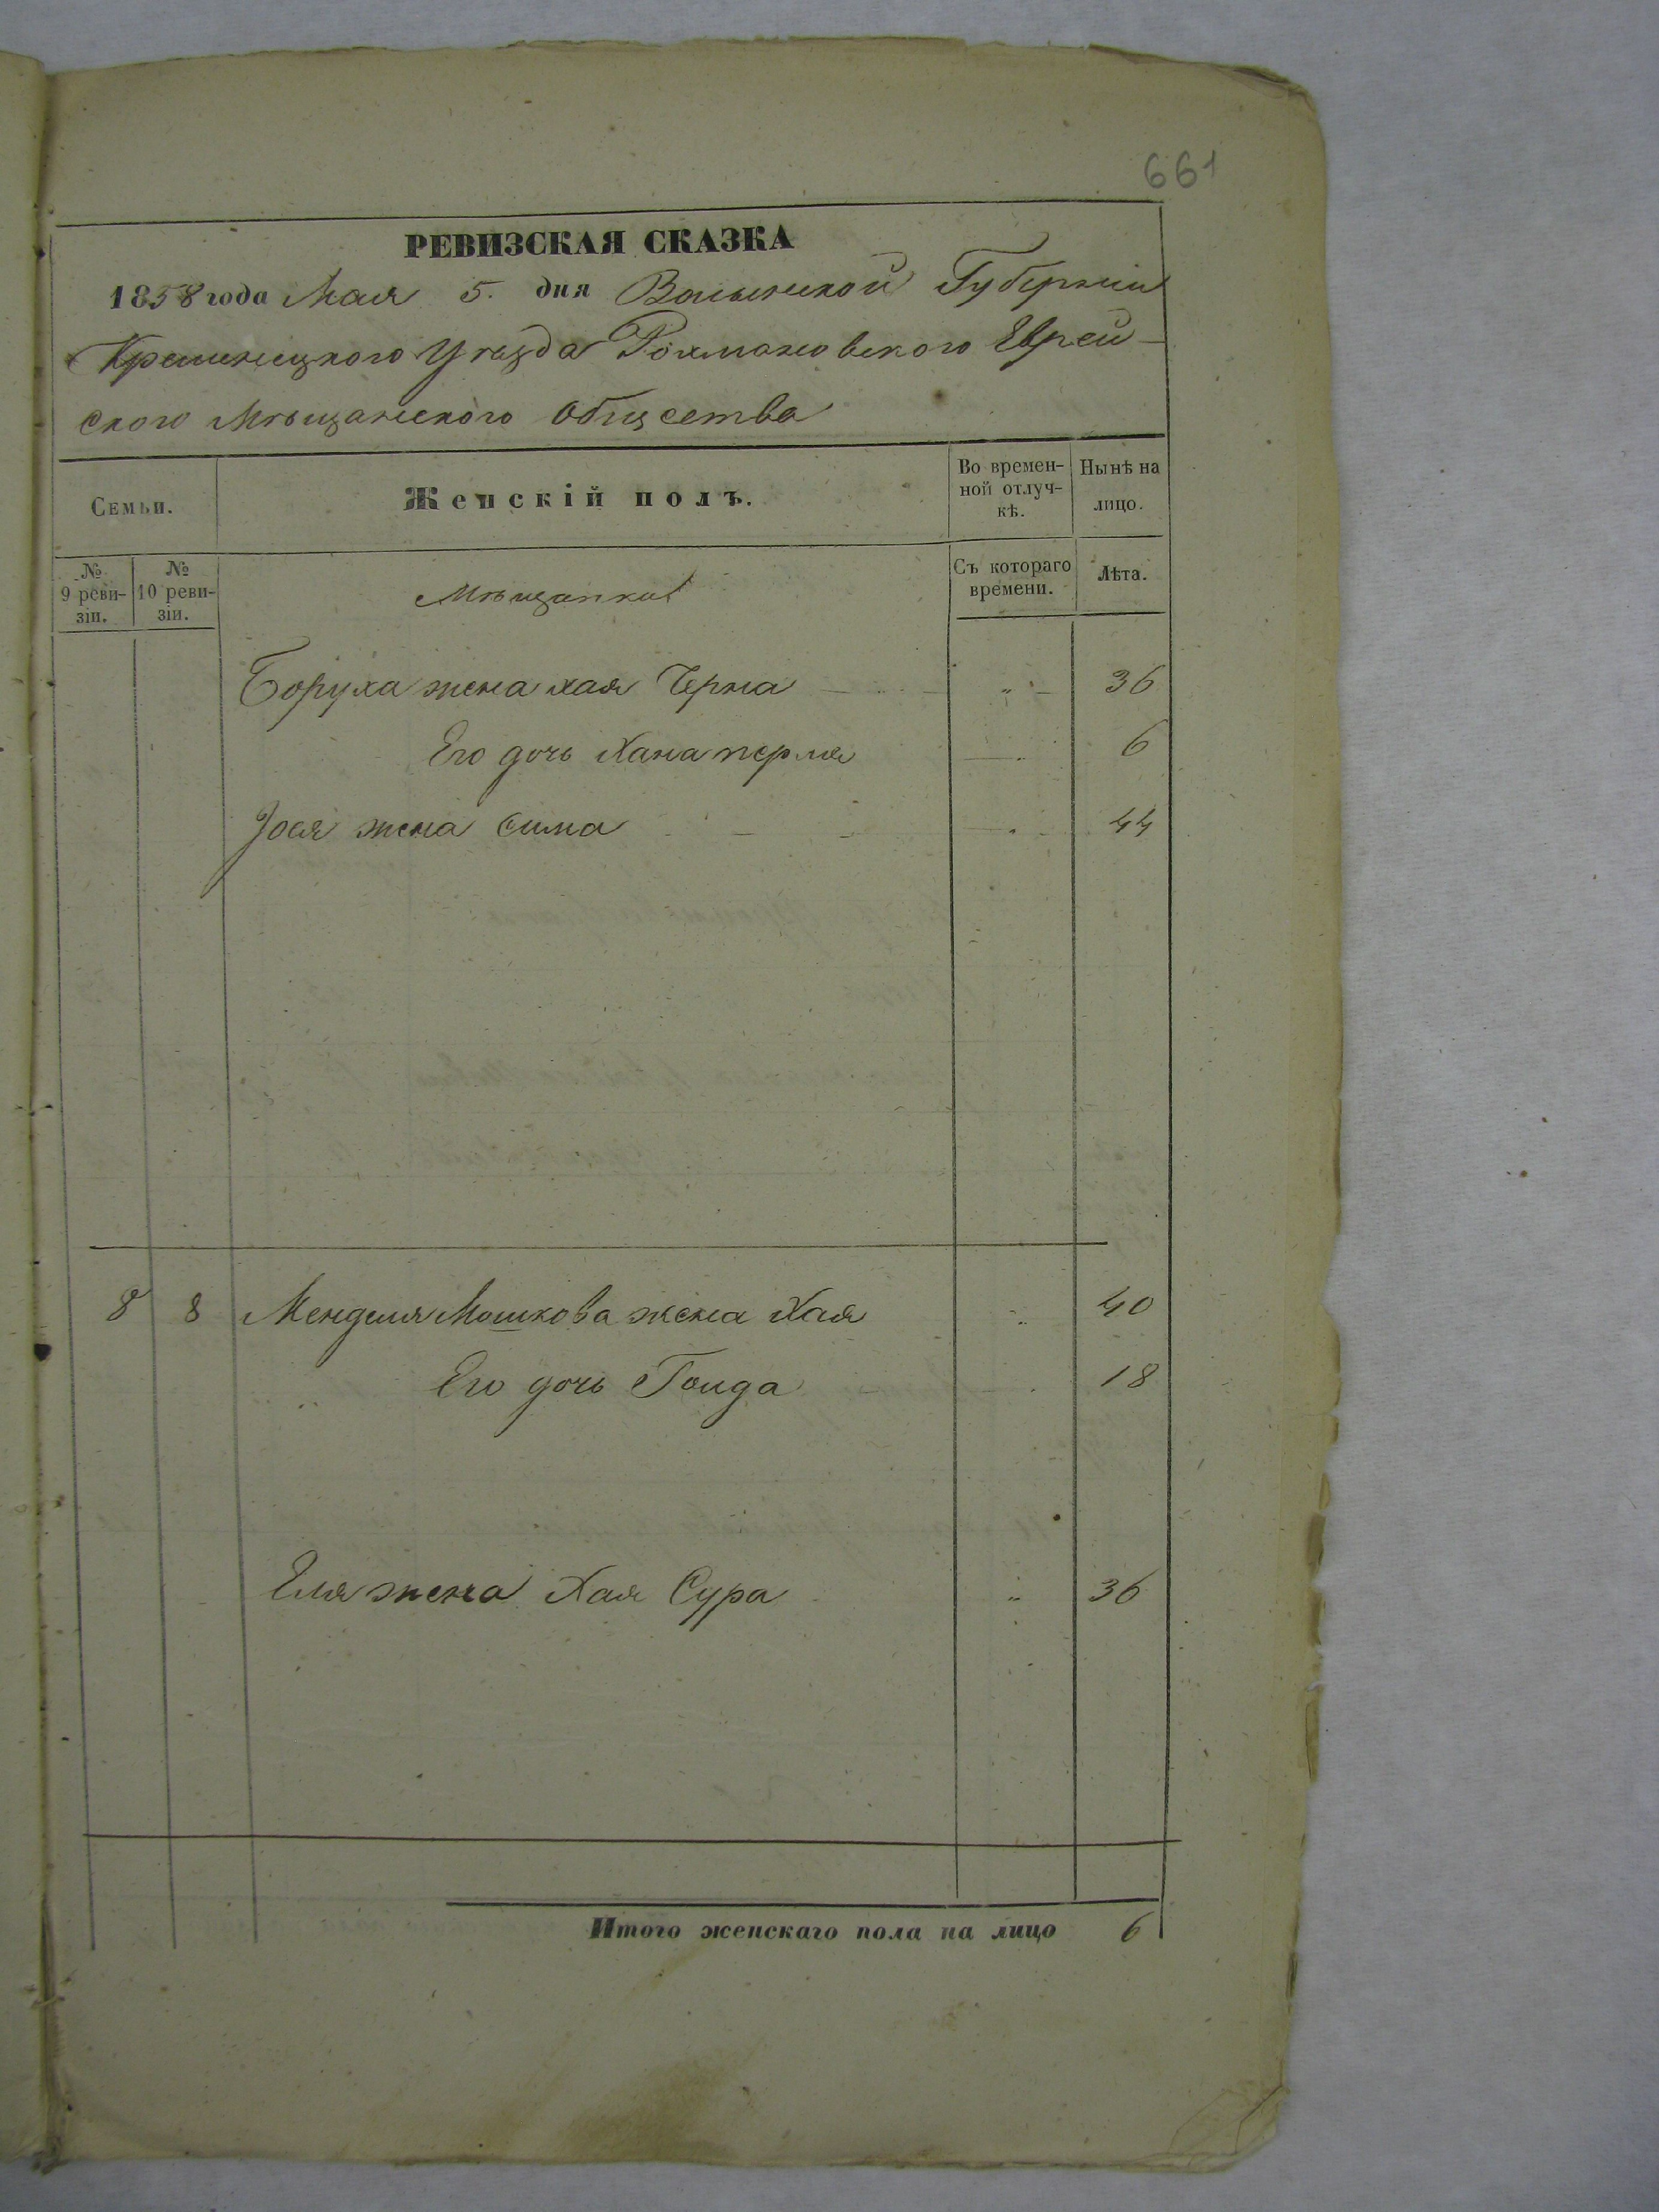 661
РЕВИЗСКАЯ СКАЗКА
1858 года Мая 5. дня Волынской Губернии
Кременецкого Уѣзда Рохмановского Еврей-
ского Мѣщанского Общества
Семьи.
Женскій полъ.
Во времен-
ной отлуч-
кѣ.
Нынѣ на
лицо.
№
9 реви-
зіи.
№
10 реви-
зіи.
Мѣщанки
Съ котораго
времени.
Лѣта.
Боруха жена хая Черна — „ — 36
Его дочь Хана перля — „ 6
Јося жена Сима — — „ 44
8 8 Менделя Мошкова жена Хая „ 40
Его дочь Голда — „ 18
Еля жена Хая Сура „ 36
Итого женскаго пола на лицо 6